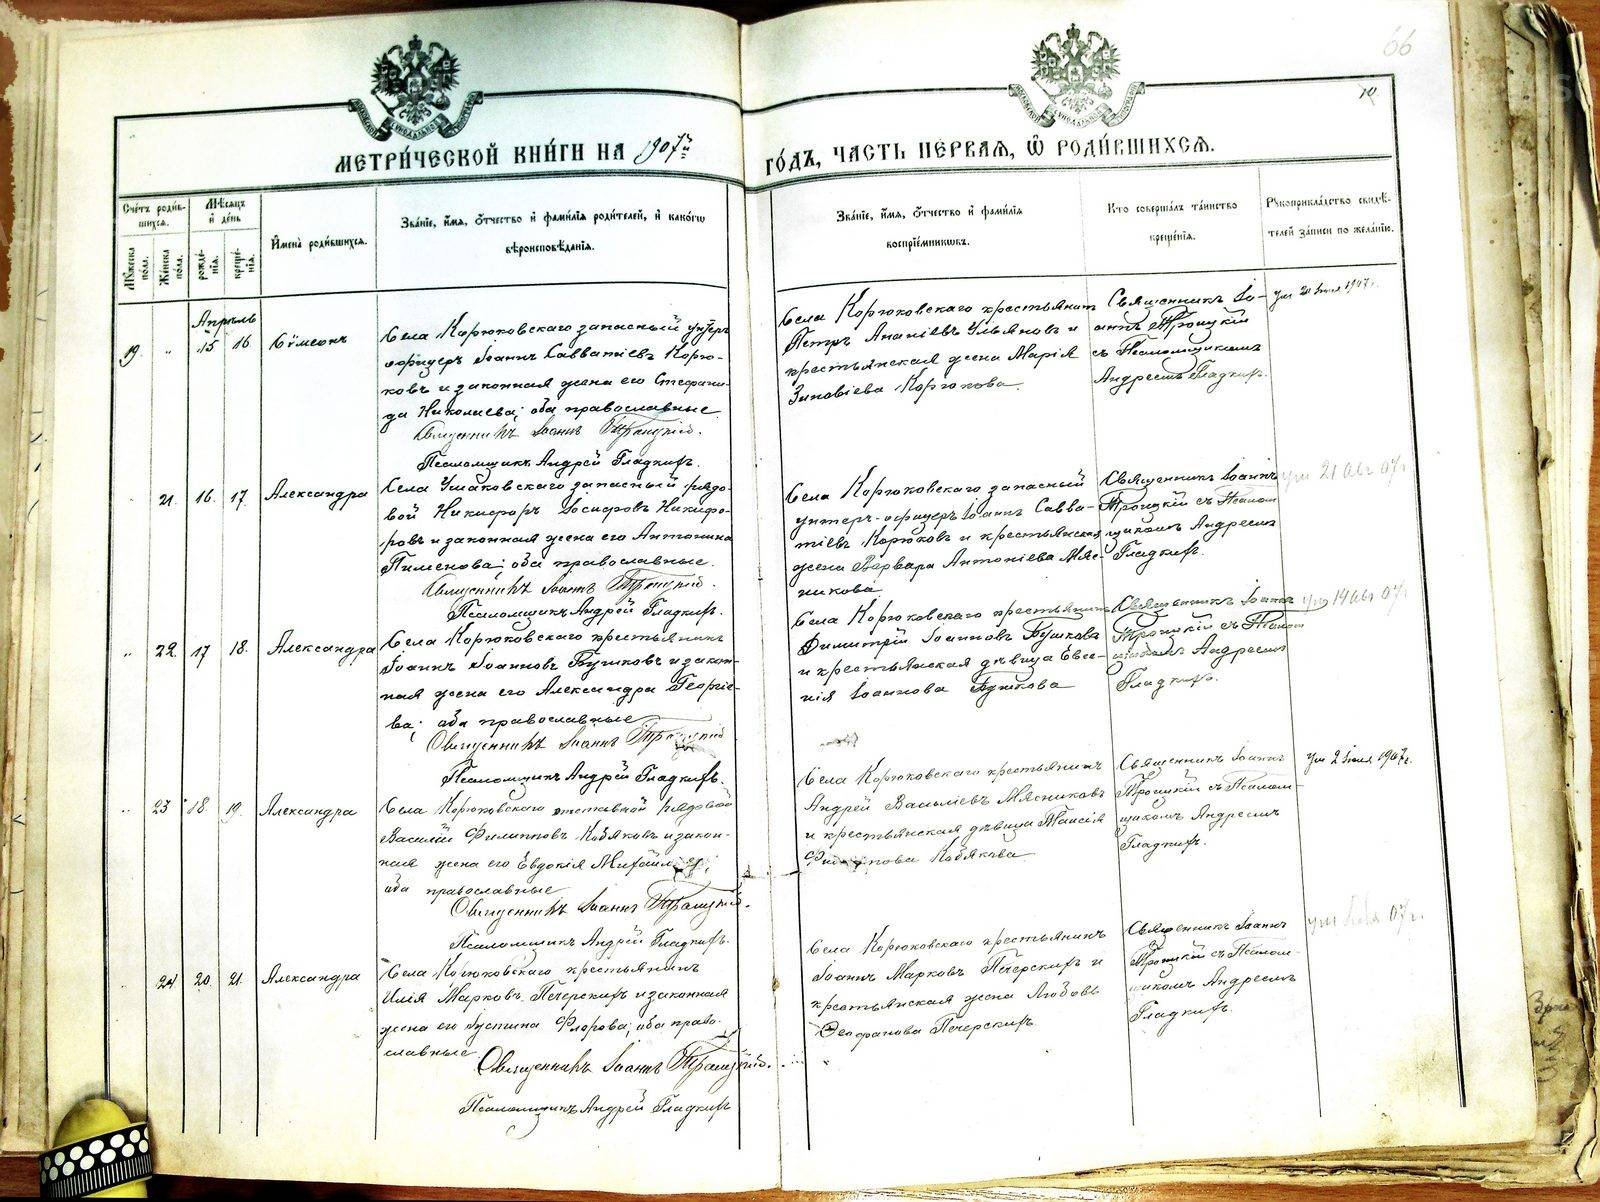 66
10
МЕТРИ́ЧЕСКОЙ КНИ́ГИ НА 1907й
ГО́ДЪ, ЧАСТЬ ПЕ́РВАЯ, Ѿ РОДИ́ВШИХСЯ.
Сче́тъ роди́в-
шихся.
Му́жеска по́ла.
Же́нска по́ла.
Мѣ́сяцъ
и де́нь
рожде́-
нїя.
креще́-
нїя.
Имена̀ роди́вшихся.
Зва́нїе, и́мя, ѻ́тчество и фами́лїя роди́телей, и како́гѡ
вѣроисповѣ́данїя.
Зва́нїе, и́мя, ѻ́тчество и фами́лїя
воспрїе́мникѡвъ.
Кто соверша́лъ та́инство
креще́нїя.
Рꙋкоприкла́дство свидѣ́-
телей за́писи по жела́нїю.
Апрѣль
19. " 15 16 Сѷмеонъ
Села Корюковскаго запасный унтеръ
офицеръ Іоаннъ Савватіевъ Корю-
ковъ и законная жена его Стефани-
да Николаева; оба православные.
Священникъ Іоаннъ Троицкій.
Псаломщикъ Андрей Гладкихъ.
Села Корюковскаго крестьянинъ
Петръ Ананіевъ Ульяновъ и
крестьянская жена Марія
Зиновіева Корюкова.
Священникъ Іо-
аннъ Троицкій
съ Псаломщикомъ
Андреемъ Гладкихъ.
ум 20 1907г.
21. 16. 17. Александра
Села Ушаковскаго запасный рядо-
вой Никифоръ Іосифовъ Никифо-
ровъ и законная жена его Антонина
Пименова; оба православные.
Священникъ Іоаннъ Троицкій.
Псаломщикъ Андрей Гладкихъ.
Села Корюковскаго запасный
унтеръ-офицеръ Іоаннъ Савва-
тіевъ Корюковъ и крестьянская
жена Варвара Антоніева Мяс-
никова
Священникъ Іоаннъ
Троицкій съ Псалом
щикомъ Андреемъ
Гладкихъ.
ум 21 авг 07г
" 22. 17 18. Александра
Села Корюковскаго крестьянинъ
Іоаннъ Іоанновъ Бушковъ и закон-
ная жена его Александра Георгіе-
ва; оба православные
Священникъ Іоаннъ Троицкій
Псаломщикъ Андрей Гладкихъ.
Села Корюковскаго крестьянинъ
Димитрій Іоанновъ Бушковъ
и крестьянская дѣвица Евге-
нія Іоаннова Бушкова
Священникъ Іоаннъ
Троицкій съ Псалом
щикомъ Андреемъ
Гладкихъ.
ум 14 авг 07г
" 23 18. 19. Александра
Села Корюковскаго отставной рядовой
Василій Филипповъ Кобяковъ и закон-
ная жена его Евдокія
оба православные
Священникъ Іоаннъ Троицкій.
Псаломщикъ Андрей Гладкихъ.
Села Корюковскаго крестьянинъ
Андрей Васильевъ Мясниковъ
и крестьянская дѣвица Таисія
Кобякова.
Священникъ Іоаннъ
Троицкій съ Псалом-
щикомъ Андреемъ
Гладкихъ.
ум 2 1907г.
24 20. 21. Александра
Села Корюковскаго крестьянинъ
Илія Марковъ Печерскихъ и законная
жена его Іустина Флорова; оба право-
славные
Священникъ Іоаннъ Троицкій.
Псаломщикъ Андрей Гладкихъ
Села Корюковскаго крестьянинъ
Іоаннъ Марковъ Печерскихъ и
крестьянская жена Любовь
Ѳеофанова Печерскихъ
Священникъ Іоаннъ
Троицкій съ Псалом-
щикомъ Андреемъ
Гладкихъ.
ум 07г.